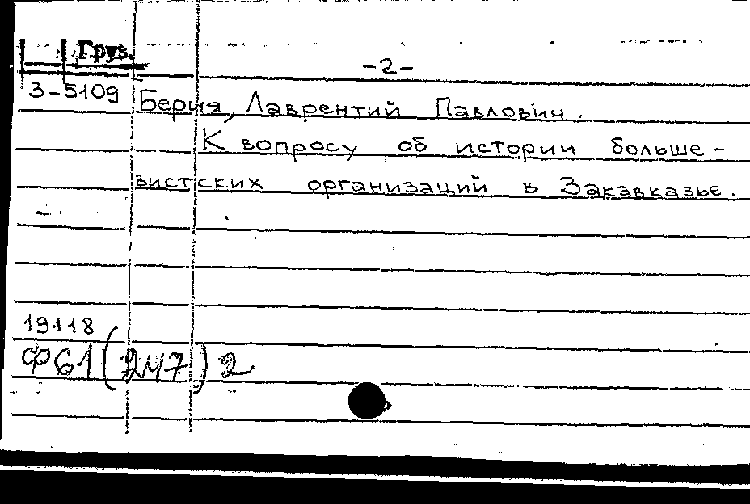 Груз.
-2-
3-5109
Берия, Лаврентий Павлович.
К вопросу об истории больше-
вистских организаций в Закавказье.
19118
Ф61(247)2